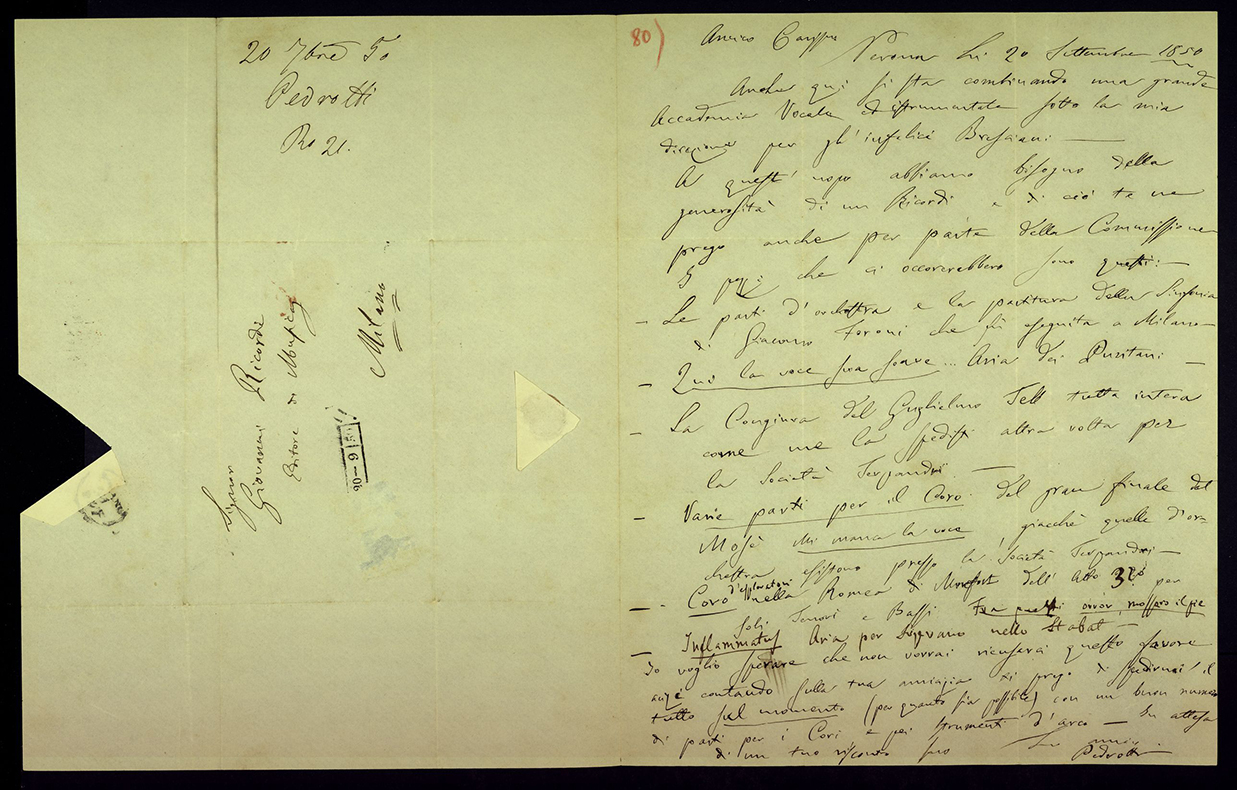 20 7bre 50
Pedrotti
Ro 21.
Signor
Giovanni Ricordi
Editore di Musica
Milano
20-9
80)
Amico Cariss
Verona li 20 Settembre 1850
Anche qui si sta combinando una grande
Accademia Vocale ed istrumentale sotto la mia
direzione per gl'infelici Bresciani —
A quest'uopo abbiamo bisogno della
generosità di un Ricordi e di ciò te ne
prego anche per parte della Commissione
I pezzi che ci occorerebbero sono questi: —
– Le parti d'orchestra e la partitura della Sinfonia
di Giacomo Foroni che fù eseguita a Milano —
– Qui la voce sua soave... Aria dei Puritani —
– La Congiura del Guglielmo Tell tutta intera
come me la spedisti altra volta per
la Società Terpandri —
– Varie parti per il Coro del gran finale del
Mosè Mi manca la voce giacchè quelle d'or=
chestra esistono presso la Società Terpandri —
– Coro d'esploratori nella Romea di Monfort dell'Atto 3zo per
soli Tenori e Bassi Fra questi orror, mossero il piè
– Inflammatus Aria per Soprano nello Stabat —
Io voglio sperare che non vorrai ricusarci questo favore
anzi contando sulla tua amicizia ti prego di spedirmi il
tutto sul momento (per quanto sia possibile) con un buon numero
di parti per i Cori e pei strumenti d'arco — In attesa
di un tuo riscontro sono
Pedrotti